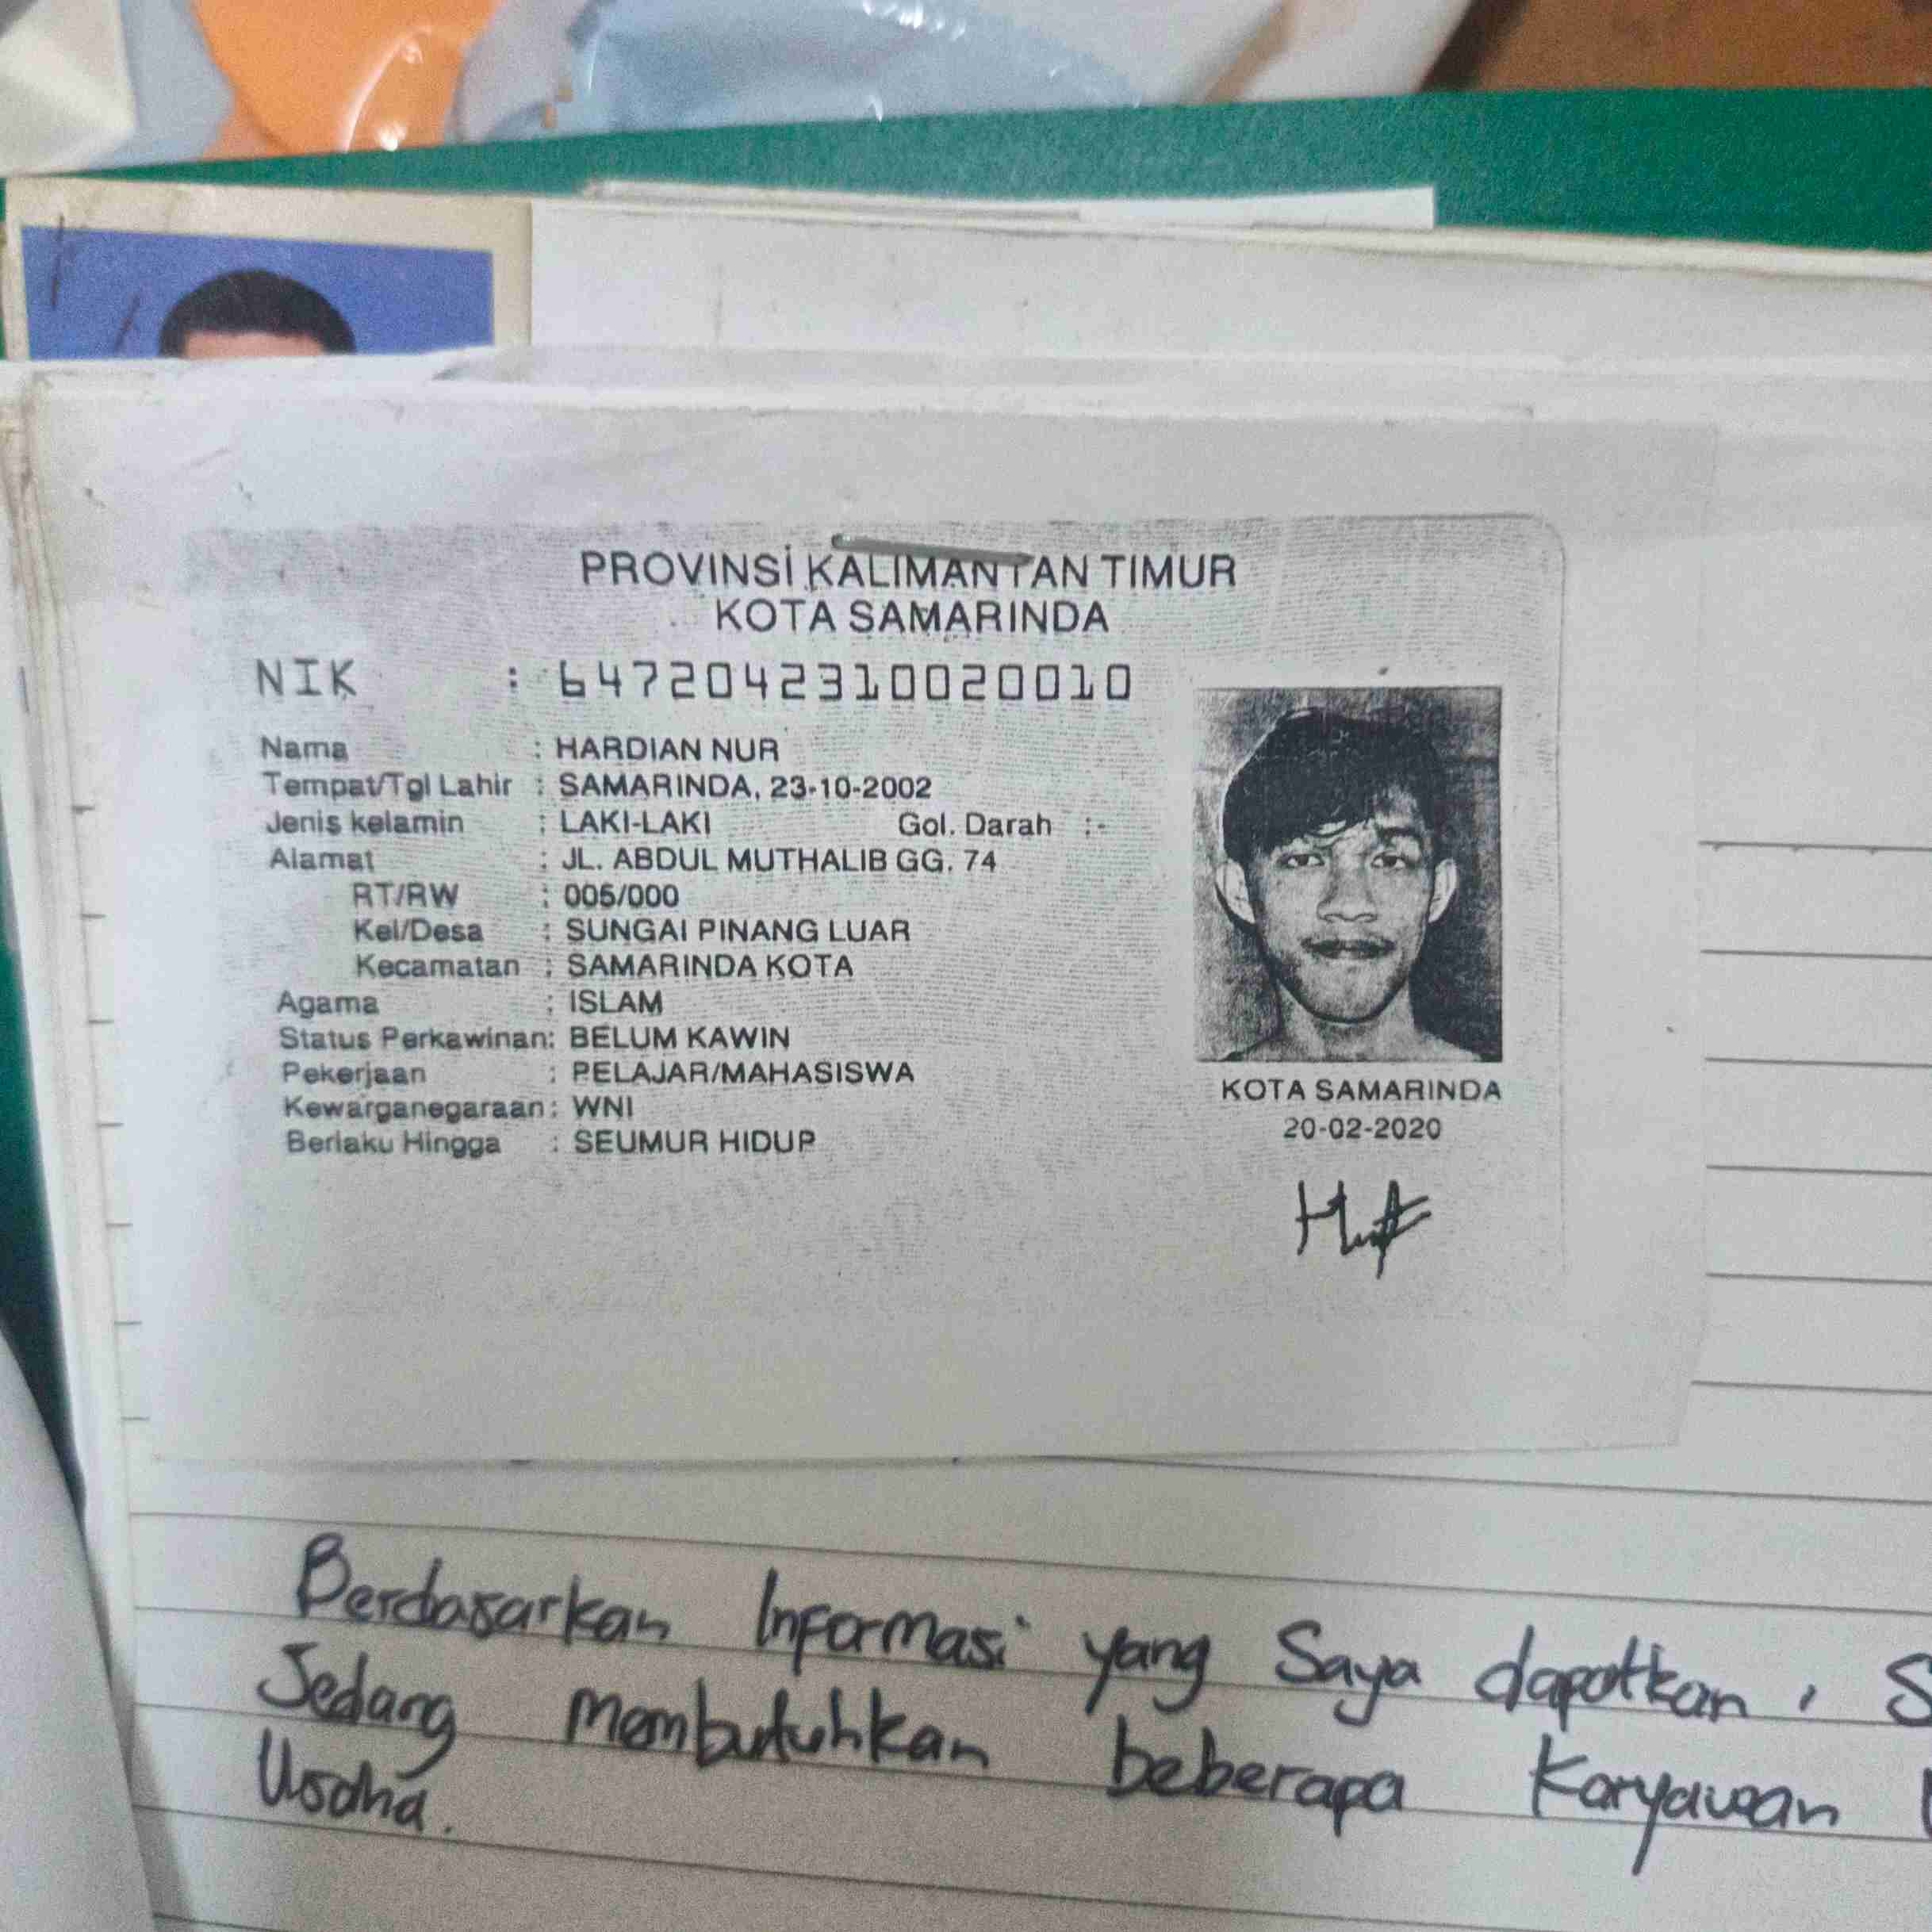 PROVINSI KALIMANTAN TIMUR
KOTA SAMARINDA
NIK : 6472042310020010
Nama : HARDIAN NUR
Tempat/Tgl Lahir : SAMARINDA, 23-10-2002
Jenis kelamin : LAKI-LAKI Gol. Darah :-
Alamat : JL. ABDUL MUTHALIB GG. 74
RT/RW : 005/000
Kel/Desa : SUNGAI PINANG LUAR
Kecamatan : SAMARINDA KOTA
Agama : ISLAM
Status Perkawinan: BELUM KAWIN
Pekerjaan : PELAJAR/MAHASISWA
Kewarganegaraan: WNI
Berlaku Hingga : SEUMUR HIDUP
KOTA SAMARINDA
20-02-2020
Berdasarkan Informasi yang Saya dapatkan,
Sedang membutuhkan beberapa Karyawan
Usaha.